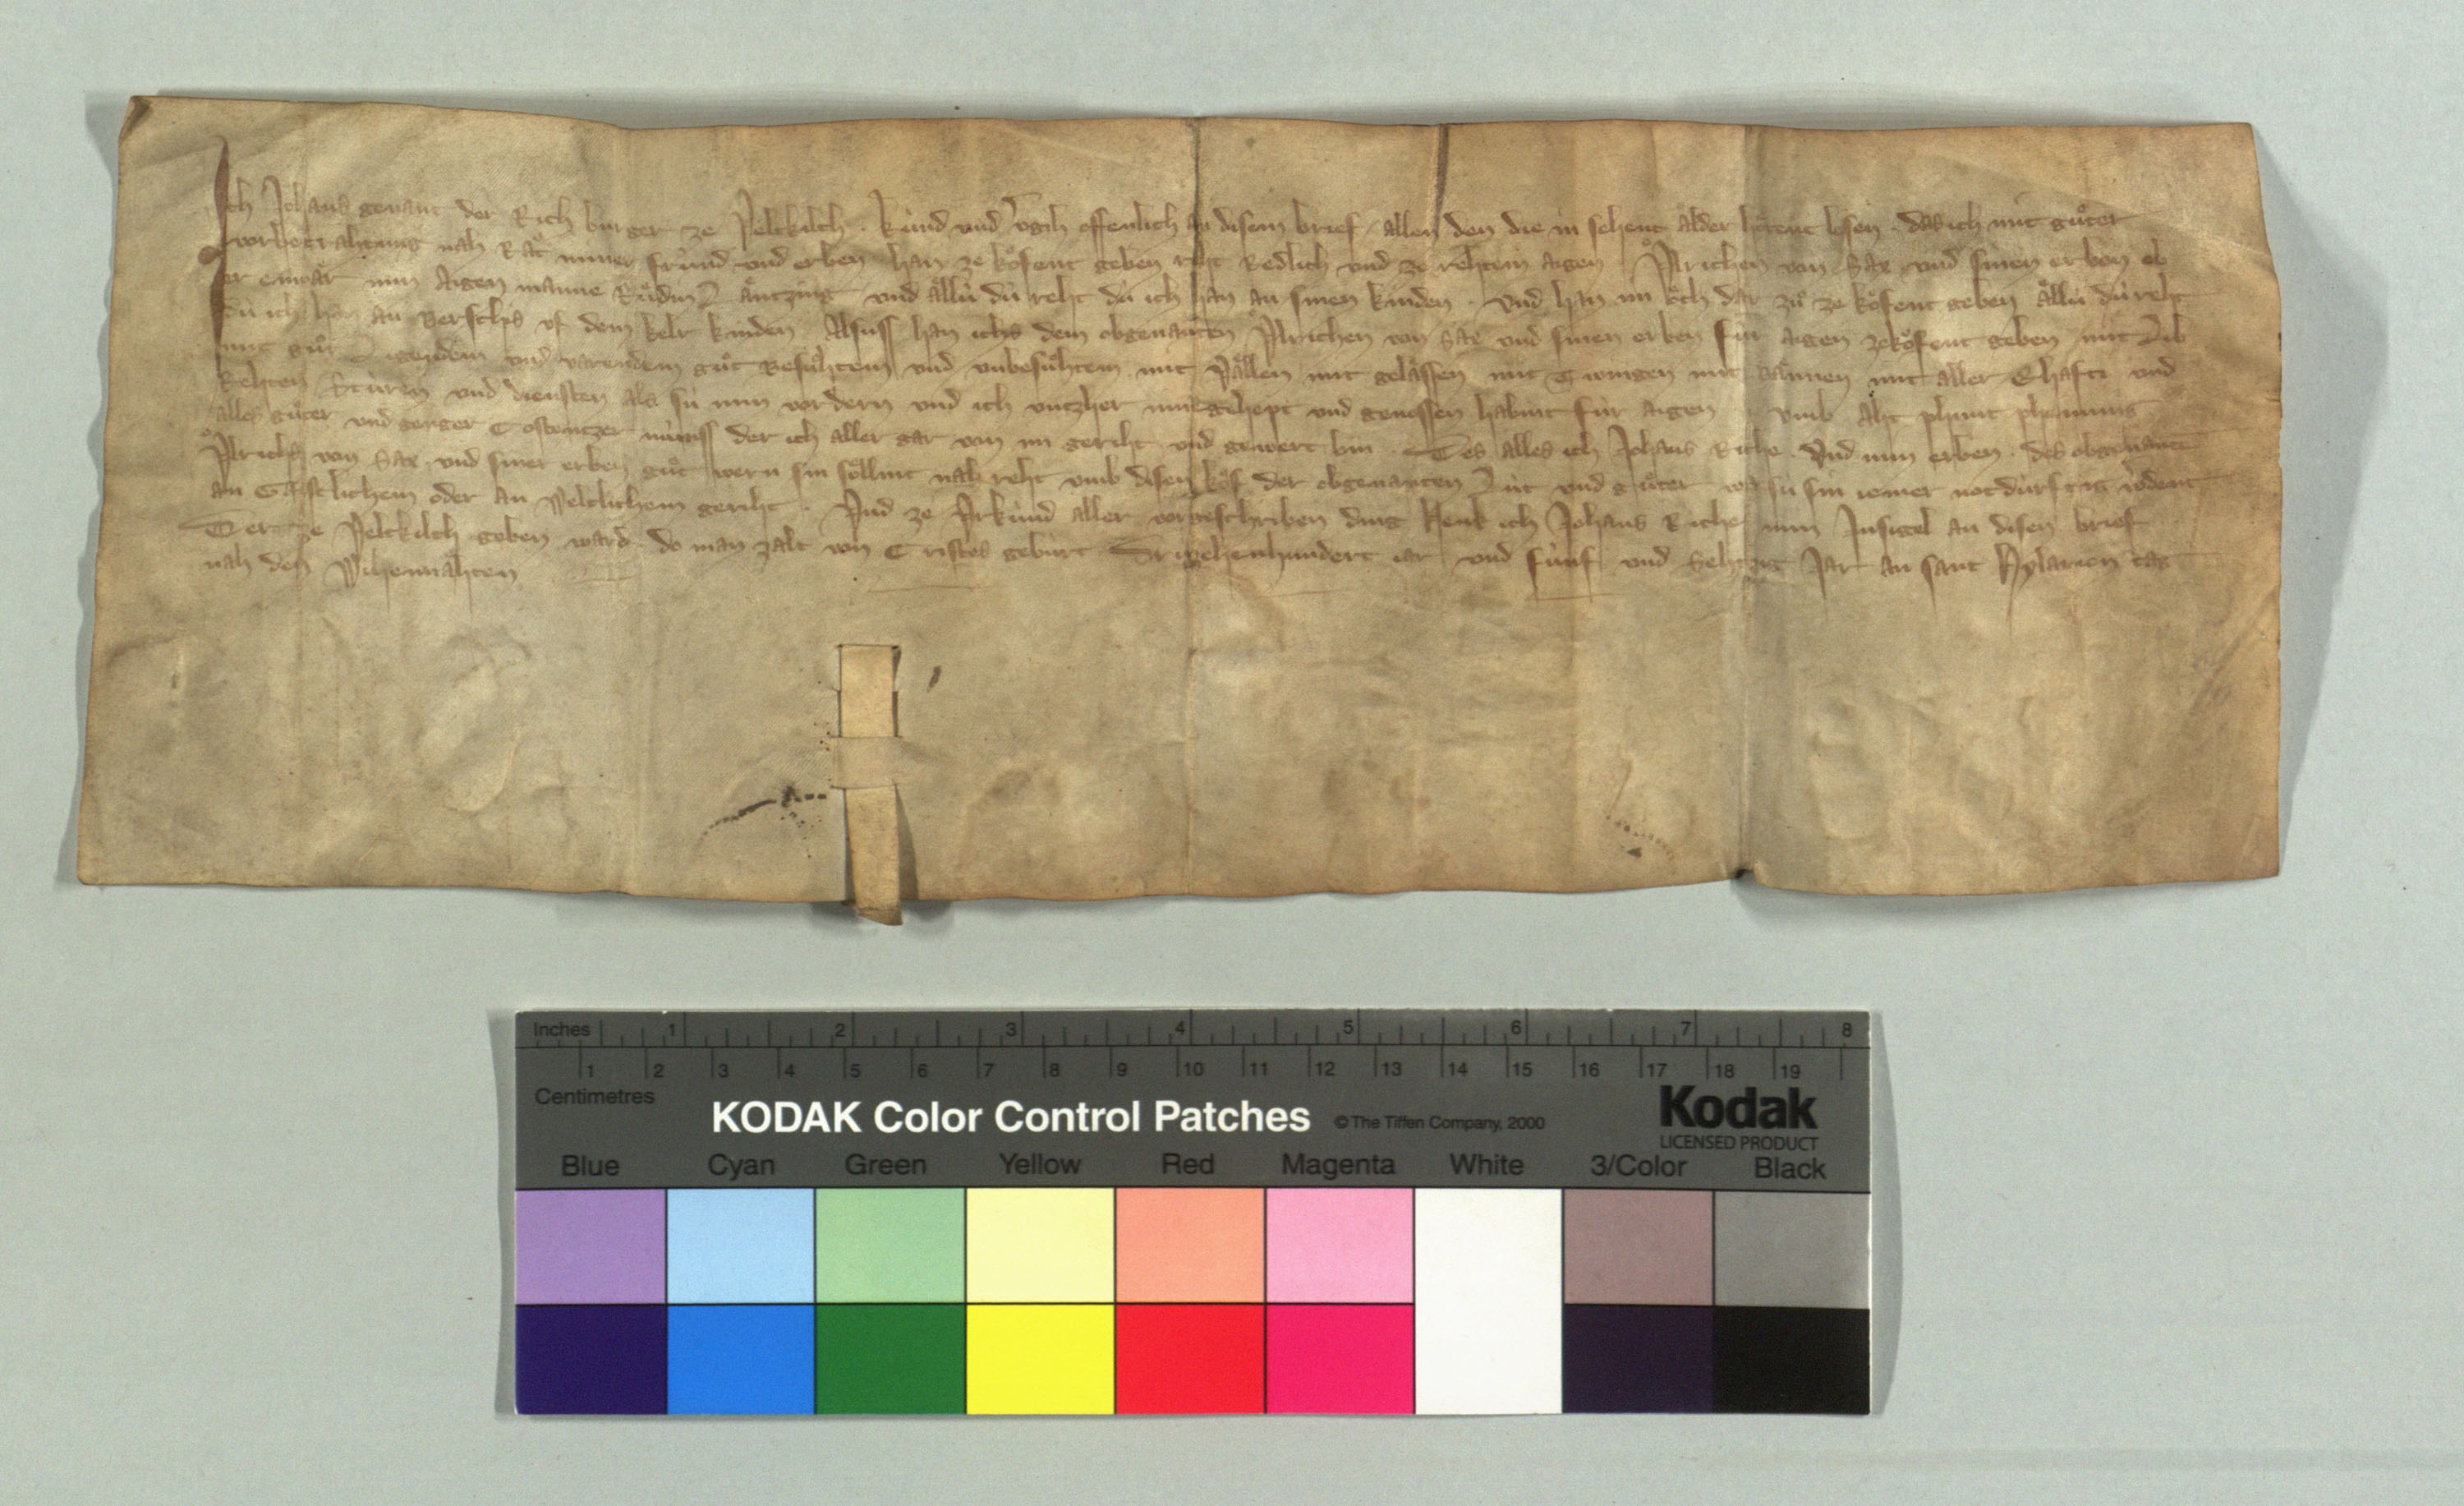 Ich Johans genant der Rich burger ze Veltkilch . kùnd und vgih offenlich an disem brief / allen den die in sehent alder hoͤrent lesen . das ich mit guͦter
vorbetrahtung nah Raͧt miner frùnd und erben han ze koͧfent geben reht Redlich und ze rehtem aigen Vͦlrichen von Sax und sinen erben ob
er enwaͤr min Aigen manne Ruͤdin Laͤntzing und aͤllù dù reht dù ich han an sinen kinden . und han im oͧch dar zuͦ ze koͧfent geben aͤllù dù reht
dù ich han an Berschis uf dem kelr kinden Alsuss han ichs dem obgenanten Vͦlrichen von Sax und sinen erben fùr aigen ze koͧfent geben mit Lib
mit guͦt Ligendem und varendem guͦt Besuͦhtem und unbesuͦhtem mit Vaͤllen mit gelaͤssen mit Twingen mit baͤnnen mit aller Ehafti und
Rehten Stùren und diensten als sù min vordern und ich untzher inne gehept und genossen habint fùr aigen umb Aht phunt phenning
alles guͦter und genger Costentzer mùnss der ich aller gar von im geriht und gewert bin . Des alles ich Johans Riche . Und min erben . des obgenanten
Vͦlrichs von Sax und siner erben guͦt wern sin soͤllint nah reht umb disen koͧf der obgenanten Lùt und guͤter wa sù sin iemer notdùrftig wͤdent
an Gaistlichem oder an Weltlichem geriht . Und ze Urkùnd aller vorgeschriben ding Henk ich Johans Riche min Insigel an disen brief
Der ze Veltkilch geben ward do man zalt von Cristes gebùrt Drizehenhundert iar und fùnf und Sehtzig Jar an sant Hylarien tag
nah den Wihennahten
Inches 1 2 3 4 5 6 7 8
1 2 3 4 5 6 7 8 9 10 11 12 13 14 15 16 17 18 19
Centimetres
KODAK Color Control Patches © The Tiffen Company, 2000 Kodak
LICENSED PRODUCT
Blue Cyan Green Yellow Red Magenta White 3/Color Black